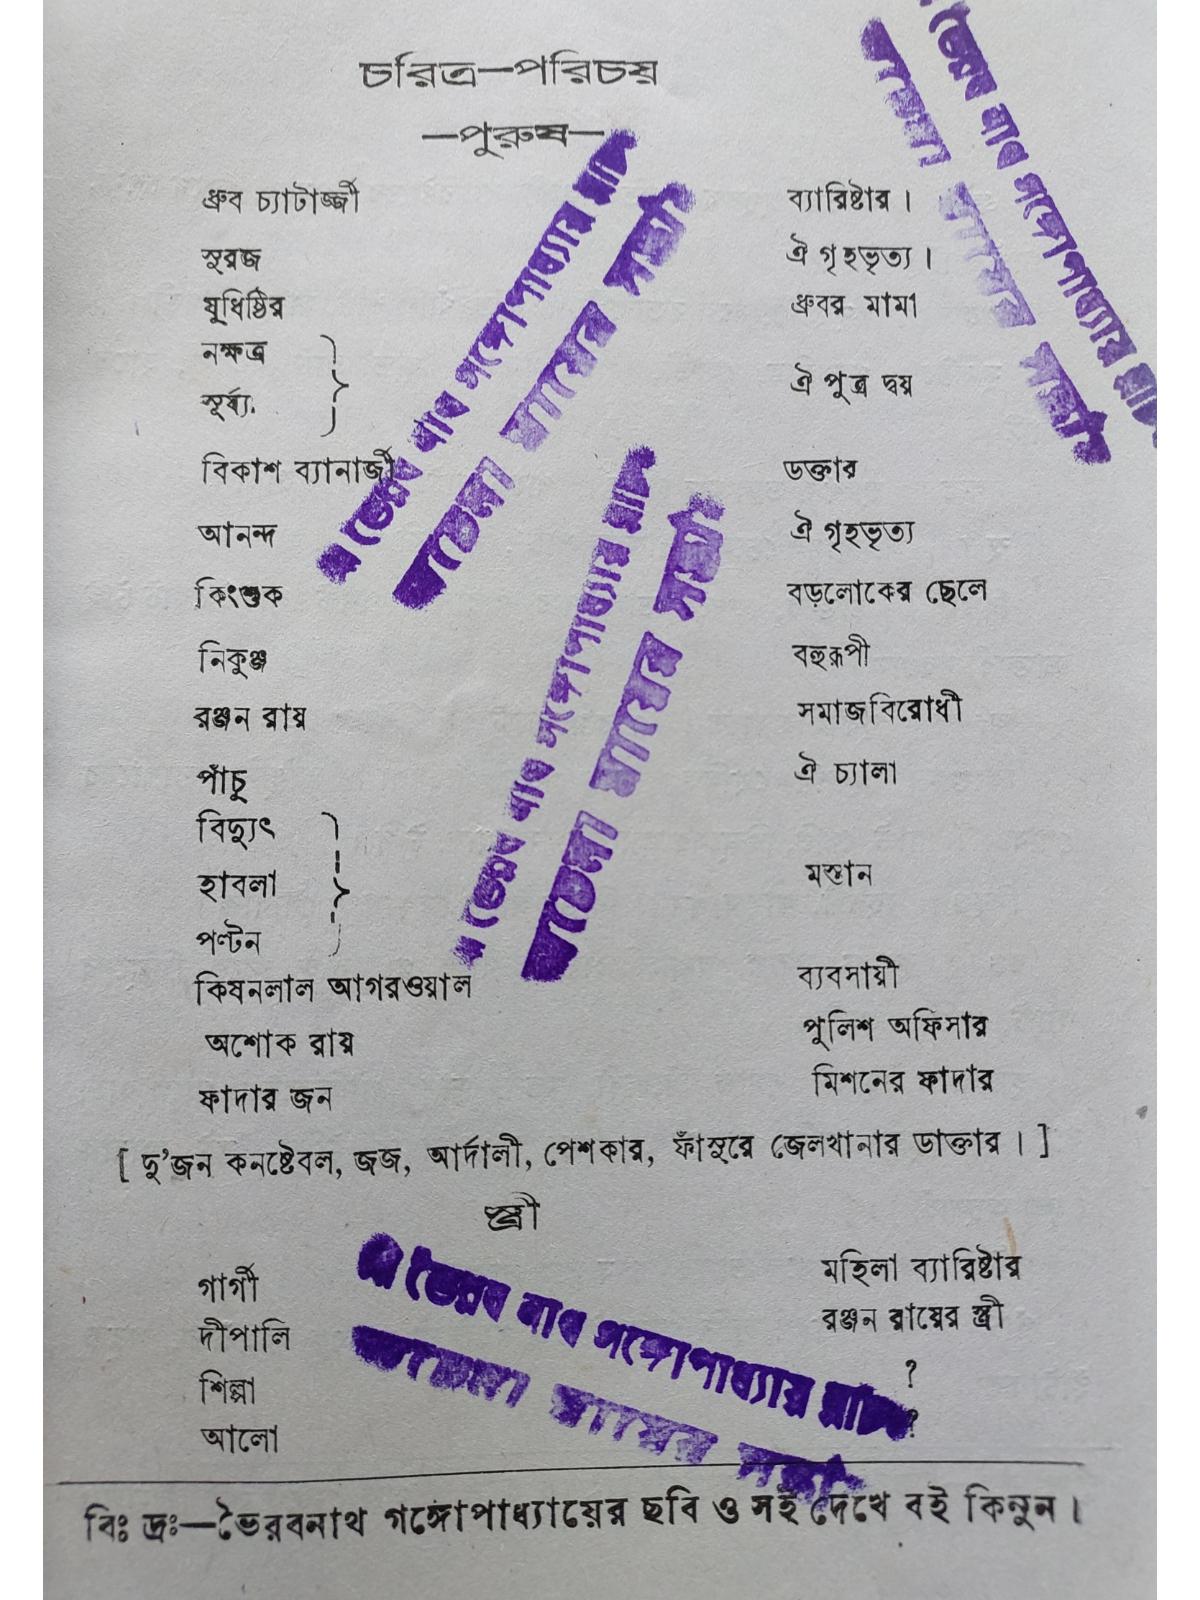 চরিত্র—পরিচয়
—পুরুষ—
ধ্রুব চ্যাটার্জ্জী ব্যারিষ্টার ।
সুরজ ঐ গৃহভৃত্য ।
যুধিষ্ঠির ধ্রুবর মামা
নক্ষত্র
সূর্য্য ঐ পুত্র দ্বয়
বিকাশ ব্যানার্জী ডক্তার
আনন্দ ঐ গৃহভৃত্য
কিংশুক বড়লোকের ছেলে
নিকুঞ্জ বহুরূপী
রঞ্জন রায় সমাজবিরোধী
পাঁচু ঐ চ্যালা
বিদ্যুৎ
হাবলা মস্তান
পল্টন
কিষনলাল আগরওয়াল ব্যবসায়ী
অশোক রায় পুলিশ অফিসার
ফাদার জন মিশনের ফাদার
[ দু'জন কনষ্টেবল, জজ, আর্দালী, পেশকার, ফাঁসুরে জেলখানার ডাক্তার । ]
স্ত্রী
গার্গী মহিলা ব্যারিষ্টার
দীপালি রঞ্জন রায়ের স্ত্রী
শিল্পা ?
আলো ?
বিঃ দ্রঃ—ভৈরবনাথ গঙ্গোপাধ্যায়ের ছবি ও সই দেখে বই কিনুন ।
ভৈরব নাথ গঙ্গোপাধ্যায়
অচেনা মায়ের
ভৈরব নাথ গঙ্গোপাধ্যায়
অচেনা মায়ের
ভৈরব নাথ গঙ্গোপাধ্যায়
অচেনা মায়ের
ভৈরব নাথ গঙ্গোপাধ্যায়
অচেনা মায়ের